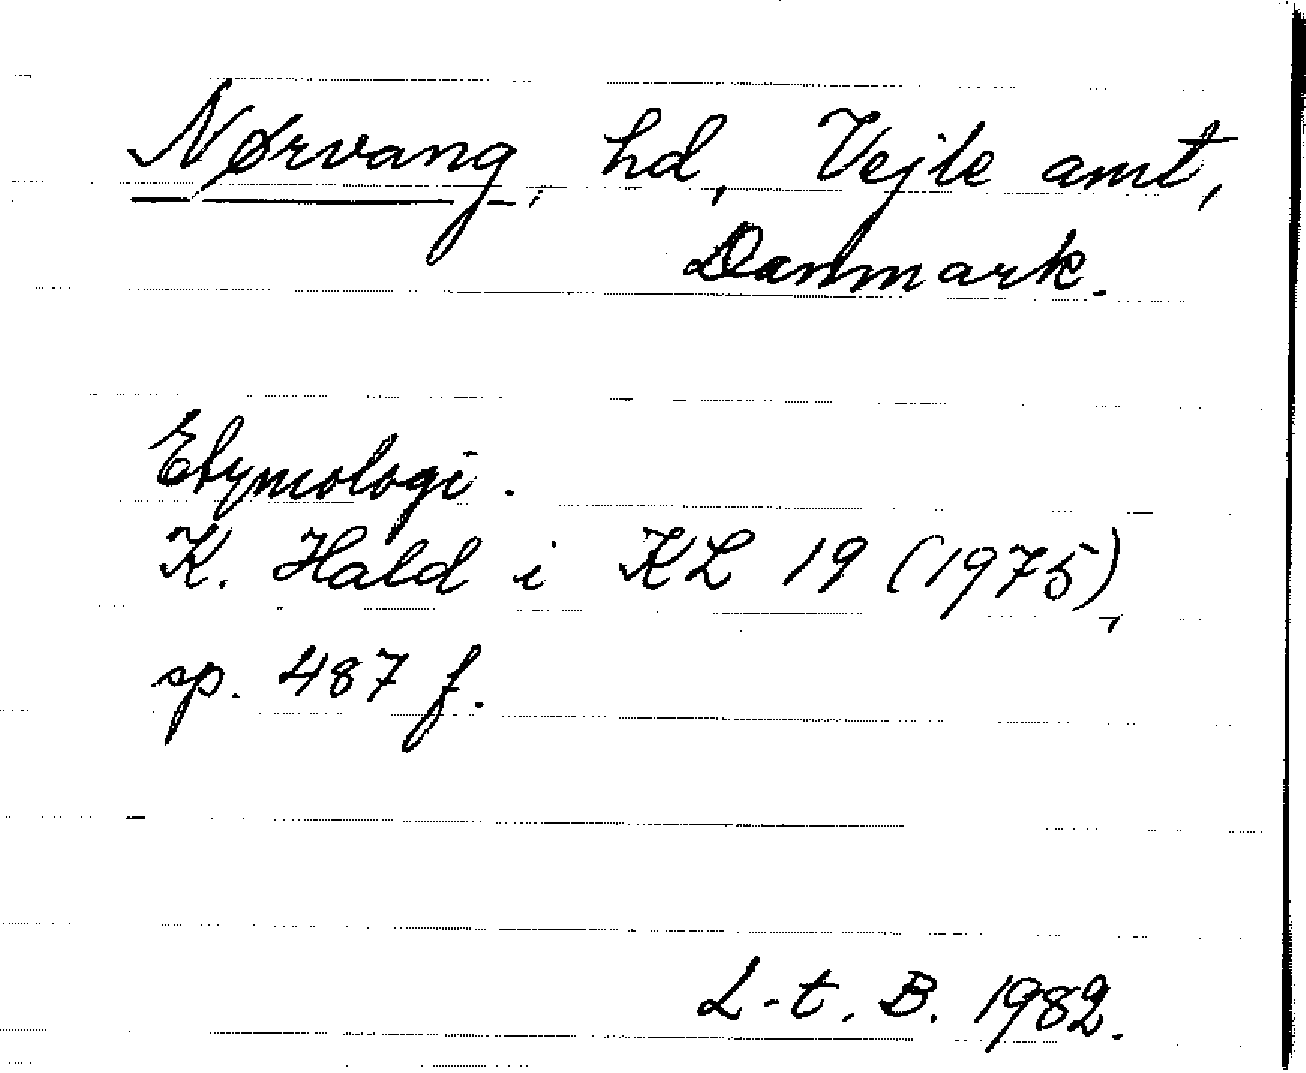 Nørvang, hd, Vejle amt,
Danmark.
Etymologi.
K. Hald i KL 19 (1975),
sp. 487 f.
L-t. B. 1982.